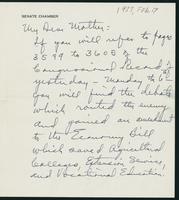 1933, Feb. 7
SENATE CHAMBER
My Dear Mother:-
If you will refer to pages
3599 to 3605 of the
Congressional Record of
yesterday - Monday the 6th
you will find the debate
which routed the enemy
and gained an amendment
to the Economy Bill
which saved Agricultural
Colleges, Extension Service,
and Vocational Education.